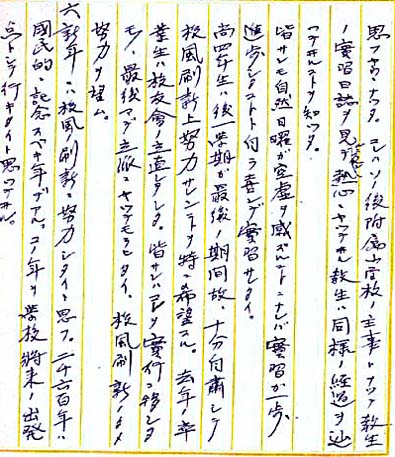 思フヤウニナツタ。コハソノ後附属小学校ノ主事トナツテ教生
ノ実習日誌ヲ見ラレ熱心ニヤツテヰル教生ハ同様ノ経過ヲ辿
ツテヰルコトヲ知ツタ。
皆サンモ自然日曜ガ空虚ヲ感ズルヤウニナレバ実習ガ一歩
進歩シタコトト付ラ喜ンデ実習サレタイ。
尚四年生ハ後一学期ガ最後ノ期間故、十分自粛シテ
校風刷新上努力サレンコトヲ特ニ希望スル。去年ノ卒
業生ハ校友會ノ立直シヲシタ。皆サンハ己ヲ実行ニ移シタ
モノ、最後マデ立派ニヤツテモラヒタイ。校風刷新ノタメ
努力ヲ望ム。
六、新年ニハ校風刷新ニ努力シタイト思フ。二千六百年ハ
國民的ニ記念スベキ年デアル。コノ年ヲ學校将来ノ出発
点トシテ行キタイト思ツテヰル。